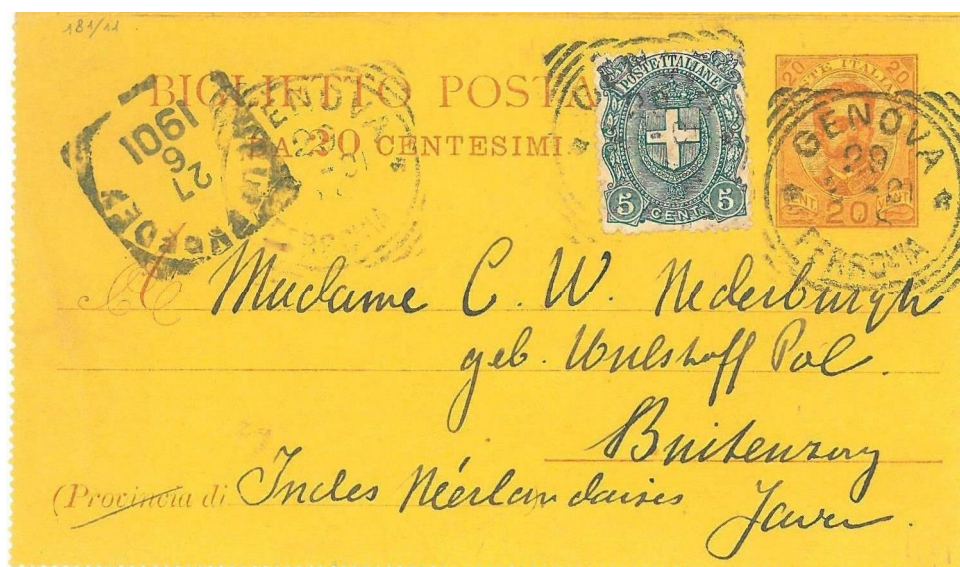 181/11
BIGLIETTO POSTA
DA 20 CENTESIMI
POSTE ITALIANE
5 CENT. 5
20 20
20
GENOVA
FERROVIA
GENOVA
29
FERROVIA
27
6
1901
A Madame C. W. Nederburgh
geb. Wulshoff Pol.
Buitenzorg
(Provincia di Indes Néerlandaises
Java.